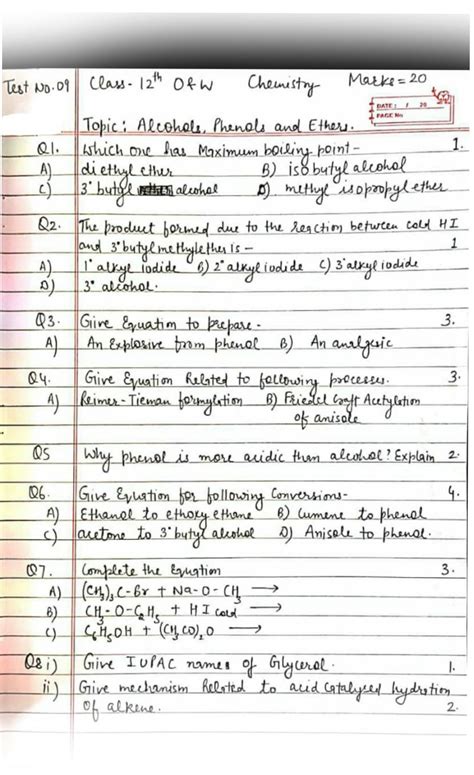 Test No.09 Class-12th O&W Chemistry Marks=20
DATE: / / 20
PAGE No.
Topic: Alcohols, Phenols and Ethers.
Q1. Which one has Maximum boiling point- 1.
A) diethyl ether B) isobutyl alcohol
C) 3° butyl alcohol D) methyl isopropyl ether
Q2. The product formed due to the reaction between cold HI
and 3° butyl methylether is - 1
A) 1° alkyl iodide B) 2° alkyl iodide C) 3° alkyl iodide
D) 3° alcohol.
Q3. Give Equation to prepare- 3.
A) An Explosive from phenol B) An analgesic
Q4. Give Equation Related to following processes. 3.
A) Reimer-Tieman formylation B) Friedel Craft Acetylation
of anisole
Q5 Why phenol is more acidic than alcohol? Explain 2.
Q6. Give Equation for following Conversions- 4.
A) Ethanol to ethoxy ethane B) Cumene to phenol
C) acetone to 3° butyl alcohol D) Anisole to phenol.
Q7. Complete the Equation 3.
A) (CH3)3C-Br + Na-O-CH3 →
B) CH3-O-C2H5 + HI cold →
C) C6H5OH + (CH3CO)2O →
Q8 i) Give IUPAC names of Glycerol. 1.
ii) Give mechanism Related to acid catalysed hydration
of alkene. 2.